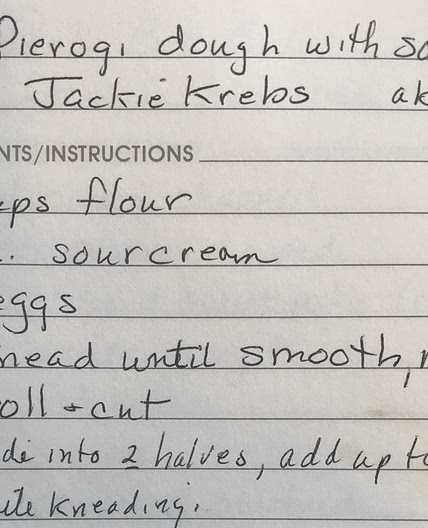 Pierogi dough with so
Jackie Krebs ak
NTS/INSTRUCTIONS
ps flour
. sourcream
eggs
nead until smooth,
oll + cut
de into 2 halves, add up to
kneading.